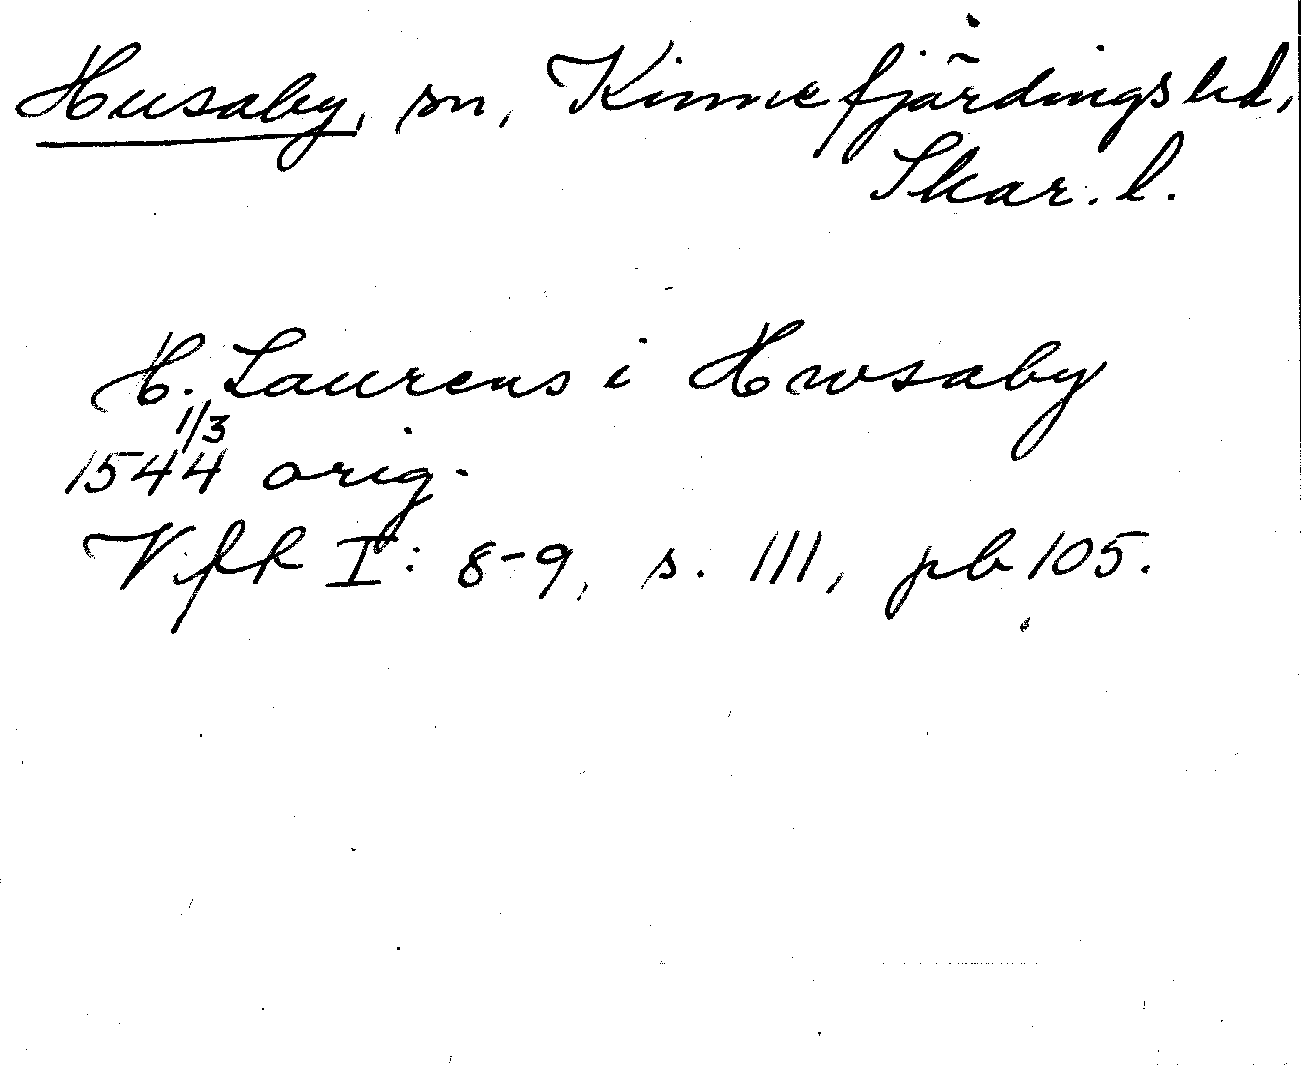 Husaby, sn, Kinnefjärdings hd,
Skar. l.
H. Laurens i Hwsaby
1/3
1544 orig.
Vfk I: 8-9, s. 111, pb 105.